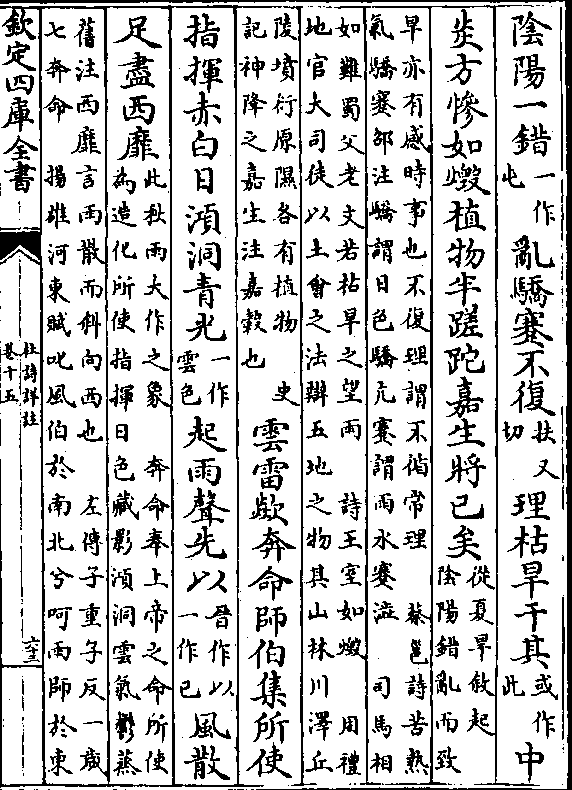 陰陽一錯一作屯亂驕蹇不復扶又切理枯旱于其或作此中
炎方慘如燬植物半蹉跎嘉生將已矣從夏旱敘起陰陽錯亂而致
旱亦有感時事也不復理謂不循常理 蔡邕詩苦熱
氣驕蹇邵注驕謂日色驕亢蹇謂雨水蹇澁 司馬相
如難蜀父老文若枯旱之望雨 詩王室如燬 周禮
地官大司徒以土會之法辨五地之物其山林川澤丘
陵墳衍原隰各有植物 史
記神降之嘉生注嘉榖也
雲雷歘奔命師伯集所使
指揮赤白日澒洞青光一作雲色起雨聲先以晉作以一作已風散
足盡西靡此秋雨大作之象 奔命奉上帝之命所使
為造化所使指揮日色藏影澒洞雲氣鬱蒸
舊注西靡言雨散而斜向西也 左傳子重子反一歲
七奔命 揚雄河東賦叱風伯於南北兮呵雨師於東
欽定四庫全書
杜詩詳註
卷十五